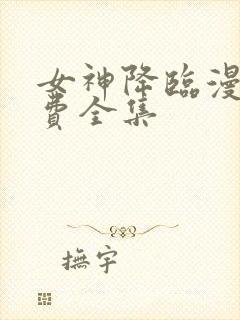 女神降臨漫
費全集
撫宇